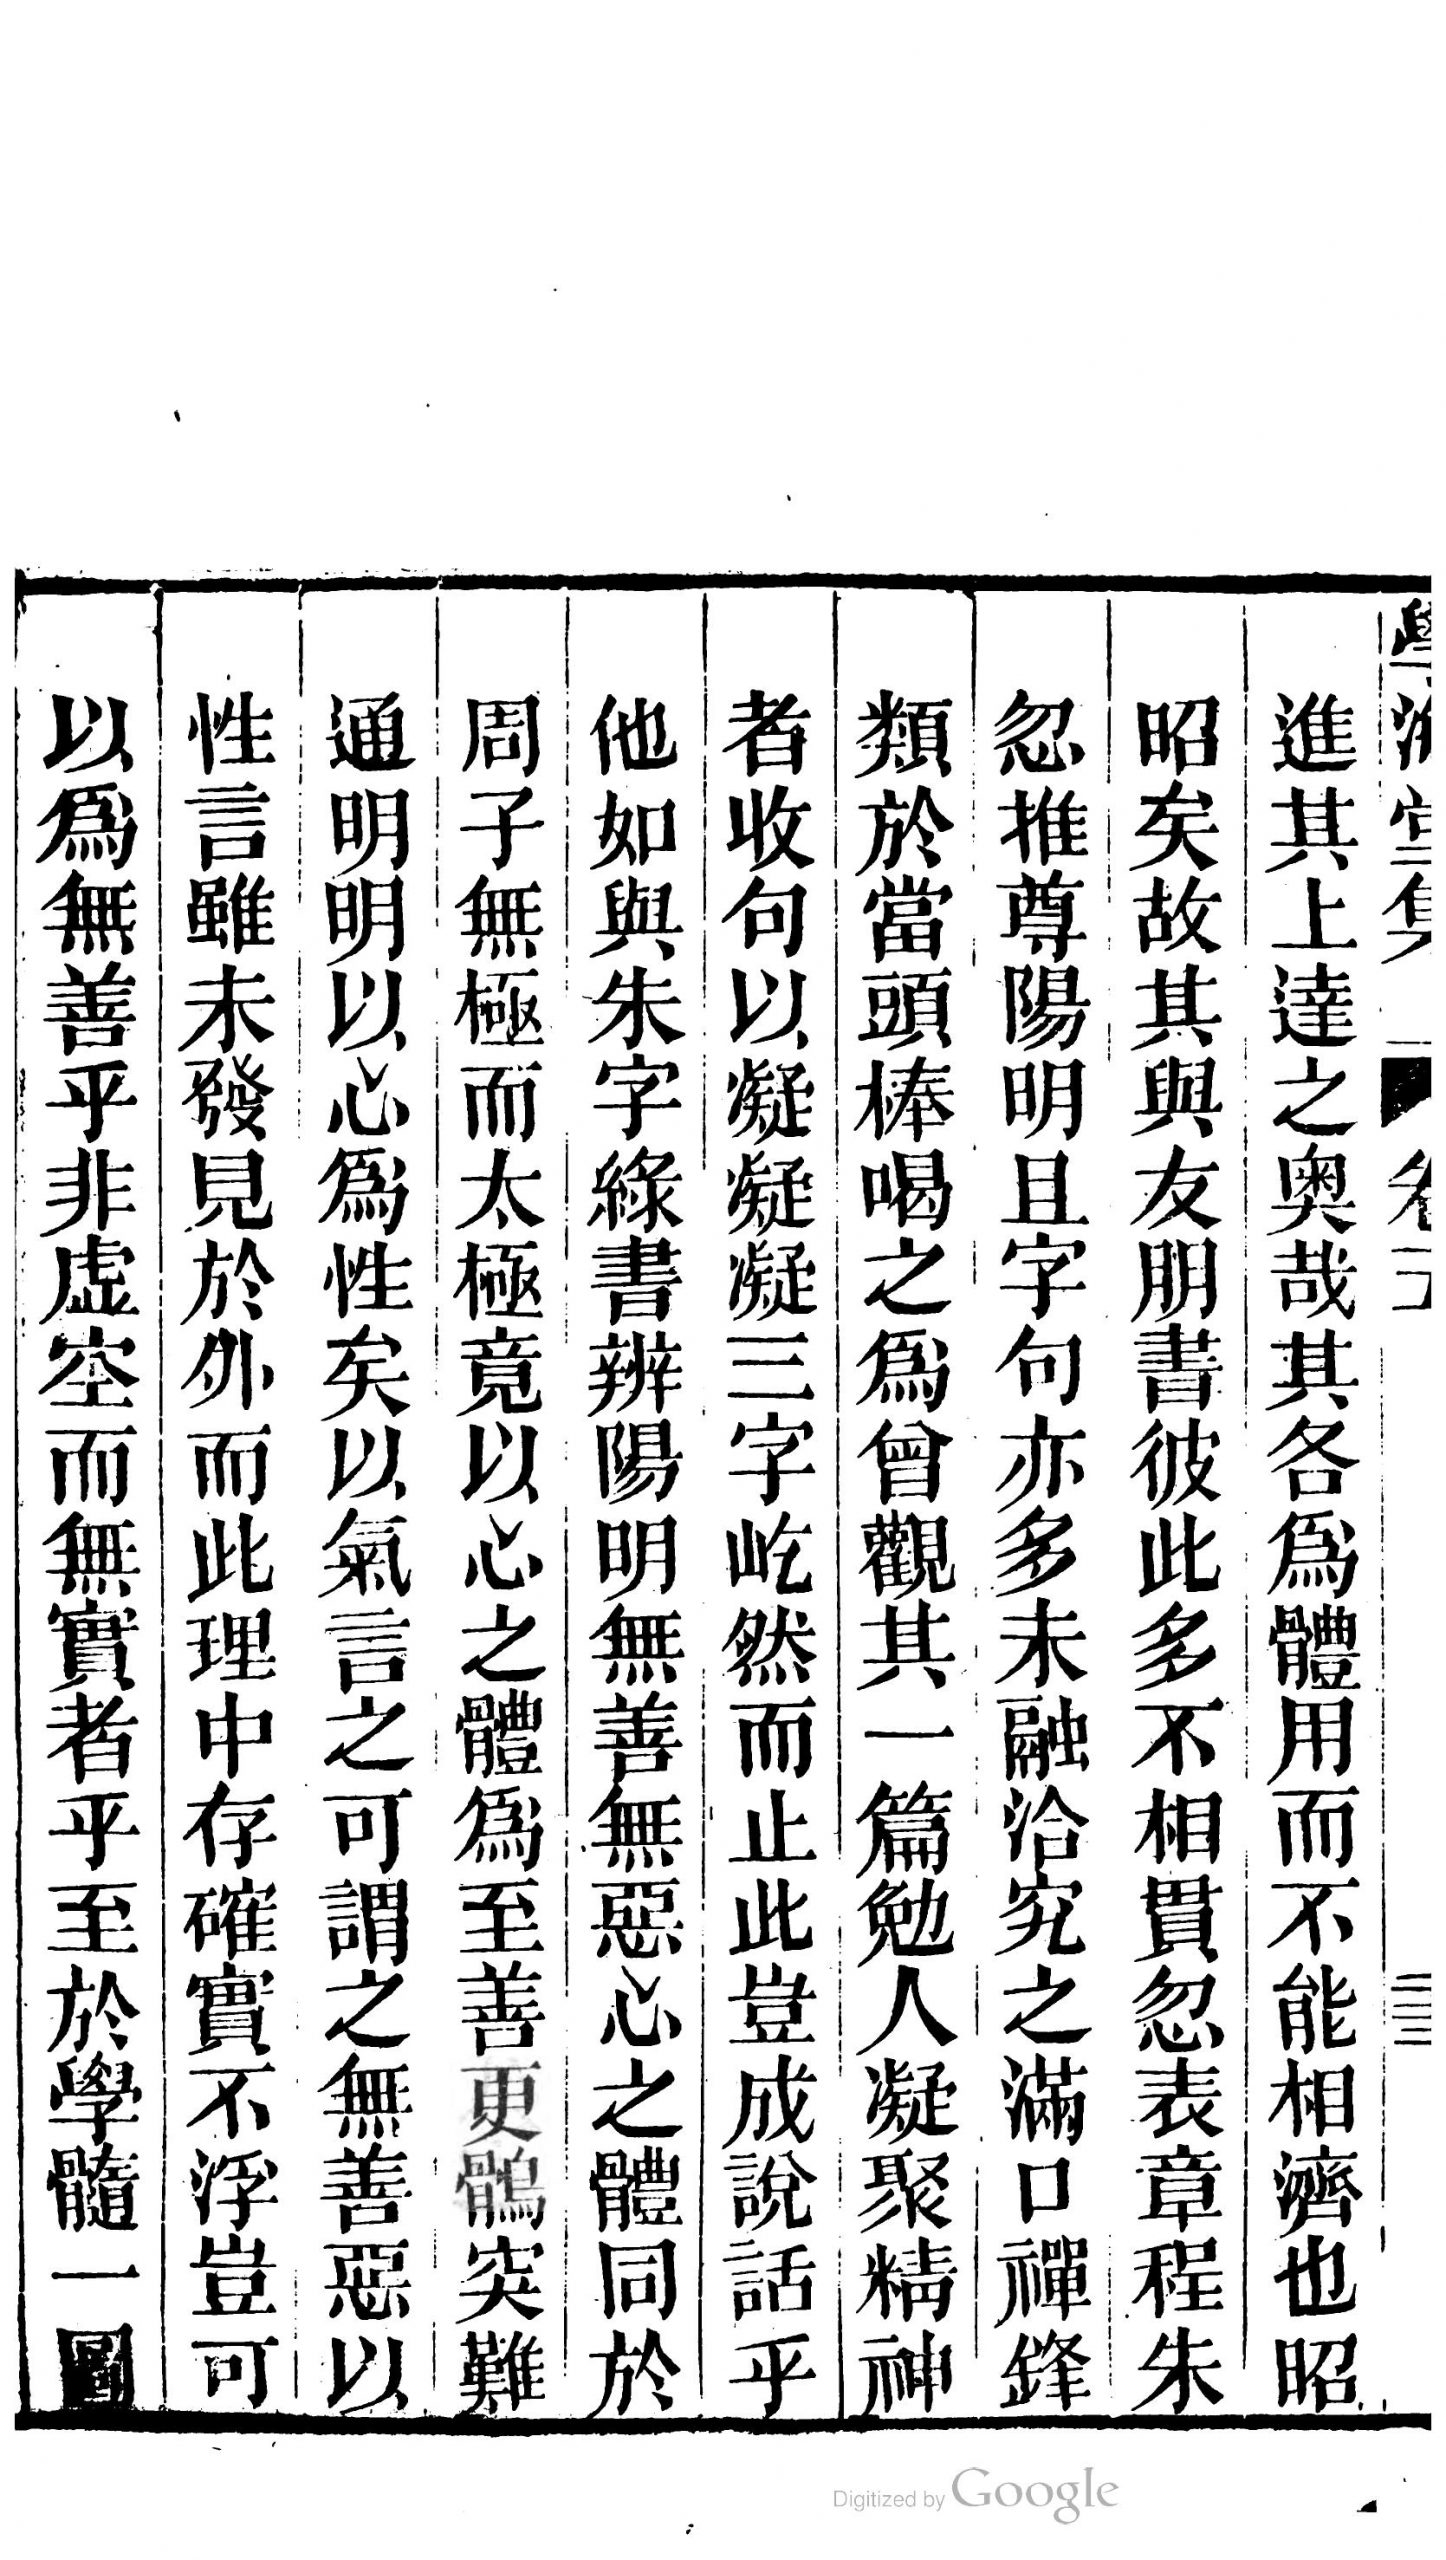 進其上達之奧哉其各爲體用而不能相濟也昭
昭矣故其與友朋書彼此多不相貫忽表章程朱
忽推尊陽明且字句亦多未融洽究之滿口禪鋒
類於當頭棒喝之爲曾觀其一篇勉人凝聚精神
者收句以凝凝凝三字屹然而止此豈成說話乎
他如與朱字綠書辨陽明無善無惡心之體同於
周子無極而太極竟以心之體爲至善更鶻突難
通明明以心爲性矣以氣言之可謂之無善惡以
性言雖未發見於外而此理中存確實不浮豈可
以爲無善乎非虛空而無實者乎至於學髓一圖
Digitized by Google